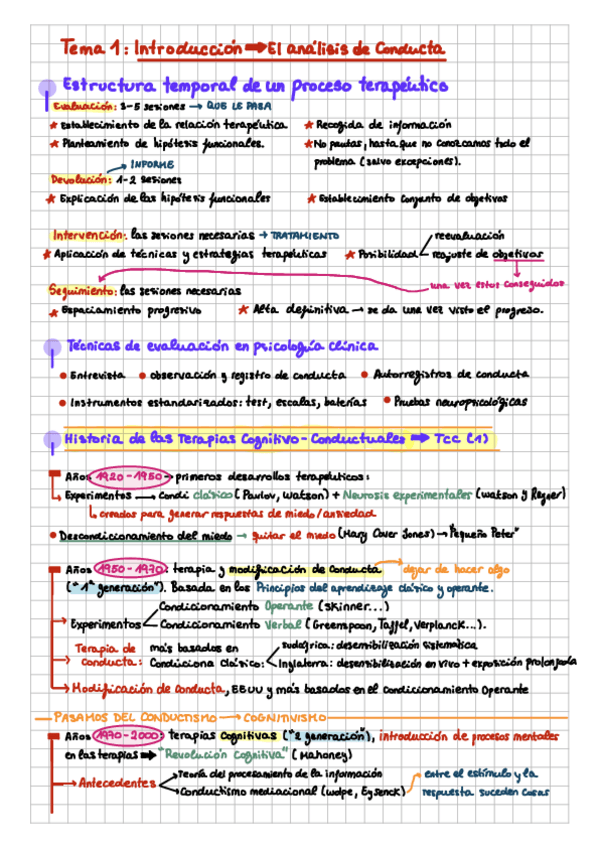 Tema 1: Introducción → El análisis de Conducta
Estructura temporal de un proceso terapéutico
Evaluación: 3-5 sesiones → QUE LE PASA
★ Establecimiento de la relación terapéutica ★ Recogida de información
★ Planteamiento de hipótesis funcionales. ★ No pautas, hasta que no conozcamos todo el
problema (salvo excepciones).
→ INFORME
Devolución: 1-2 sesiones
★ Explicación de las hipótesis funcionales ★ Establecimiento conjunto de objetivos
Intervención: las sesiones necesarias → TRATAMIENTO reevaluación
★ Aplicación de técnicas y estrategias terapéuticas ★ Posibilidad reajuste de objetivos
una vez estos conseguidos
Seguimiento: las sesiones necesarias
★ Espaciamiento progresivo ★ Alta definitiva → se da una vez visto el progreso.
Técnicas de evaluación en psicología clínica
• Entrevista • observación y registro de conducta • Autorregistros de conducta
• Instrumentos estandarizados: test, escalas, baterías • Pruebas neuropsicológicas
Historia de las Terapias Cognitivo-Conductuales → TCC (1)
Años 1920-1950 → primeros desarrollos terapéuticos:
Experimentos → Condi clásico (Pavlov, Watson) + Neurosis experimentales (Watson y Rayner)
↳ creados para generar respuestas de miedo/ansiedad
• Descondicionamiento del miedo → quitar el miedo (Mary Cover Jones) → "Pequeño Peter"
Años 1950-1970: terapia y modificación de conducta → dejar de hacer algo
("1ª generación"). Basada en los Principios del aprendizaje clásico y operante.
Condicionamiento Operante (Skinner...)
→ Experimentos
Condicionamiento Verbal (Greenspoon, Taffel, Verplanck...).
Terapia de más basados en Sudáfrica: desensibilización sistemática
conducta: Condiciona Clásico: Inglaterra: desensibilización en vivo + exposición prolongada
→ Modificación de conducta, EEUU y más basados en el Condicionamiento Operante
PASAMOS DEL CONDUCTISMO → COGNITIVISMO
Años 1970-2000: terapias cognitivas ("2 generación"), introducción de procesos mentales
en las terapias → "Revolución Cognitiva" (Mahoney)
Teoría del procesamiento de la información entre el estímulo y la
→ Antecedentes
Conductismo mediacional (Wolpe, Eysenck) respuesta suceden cosas